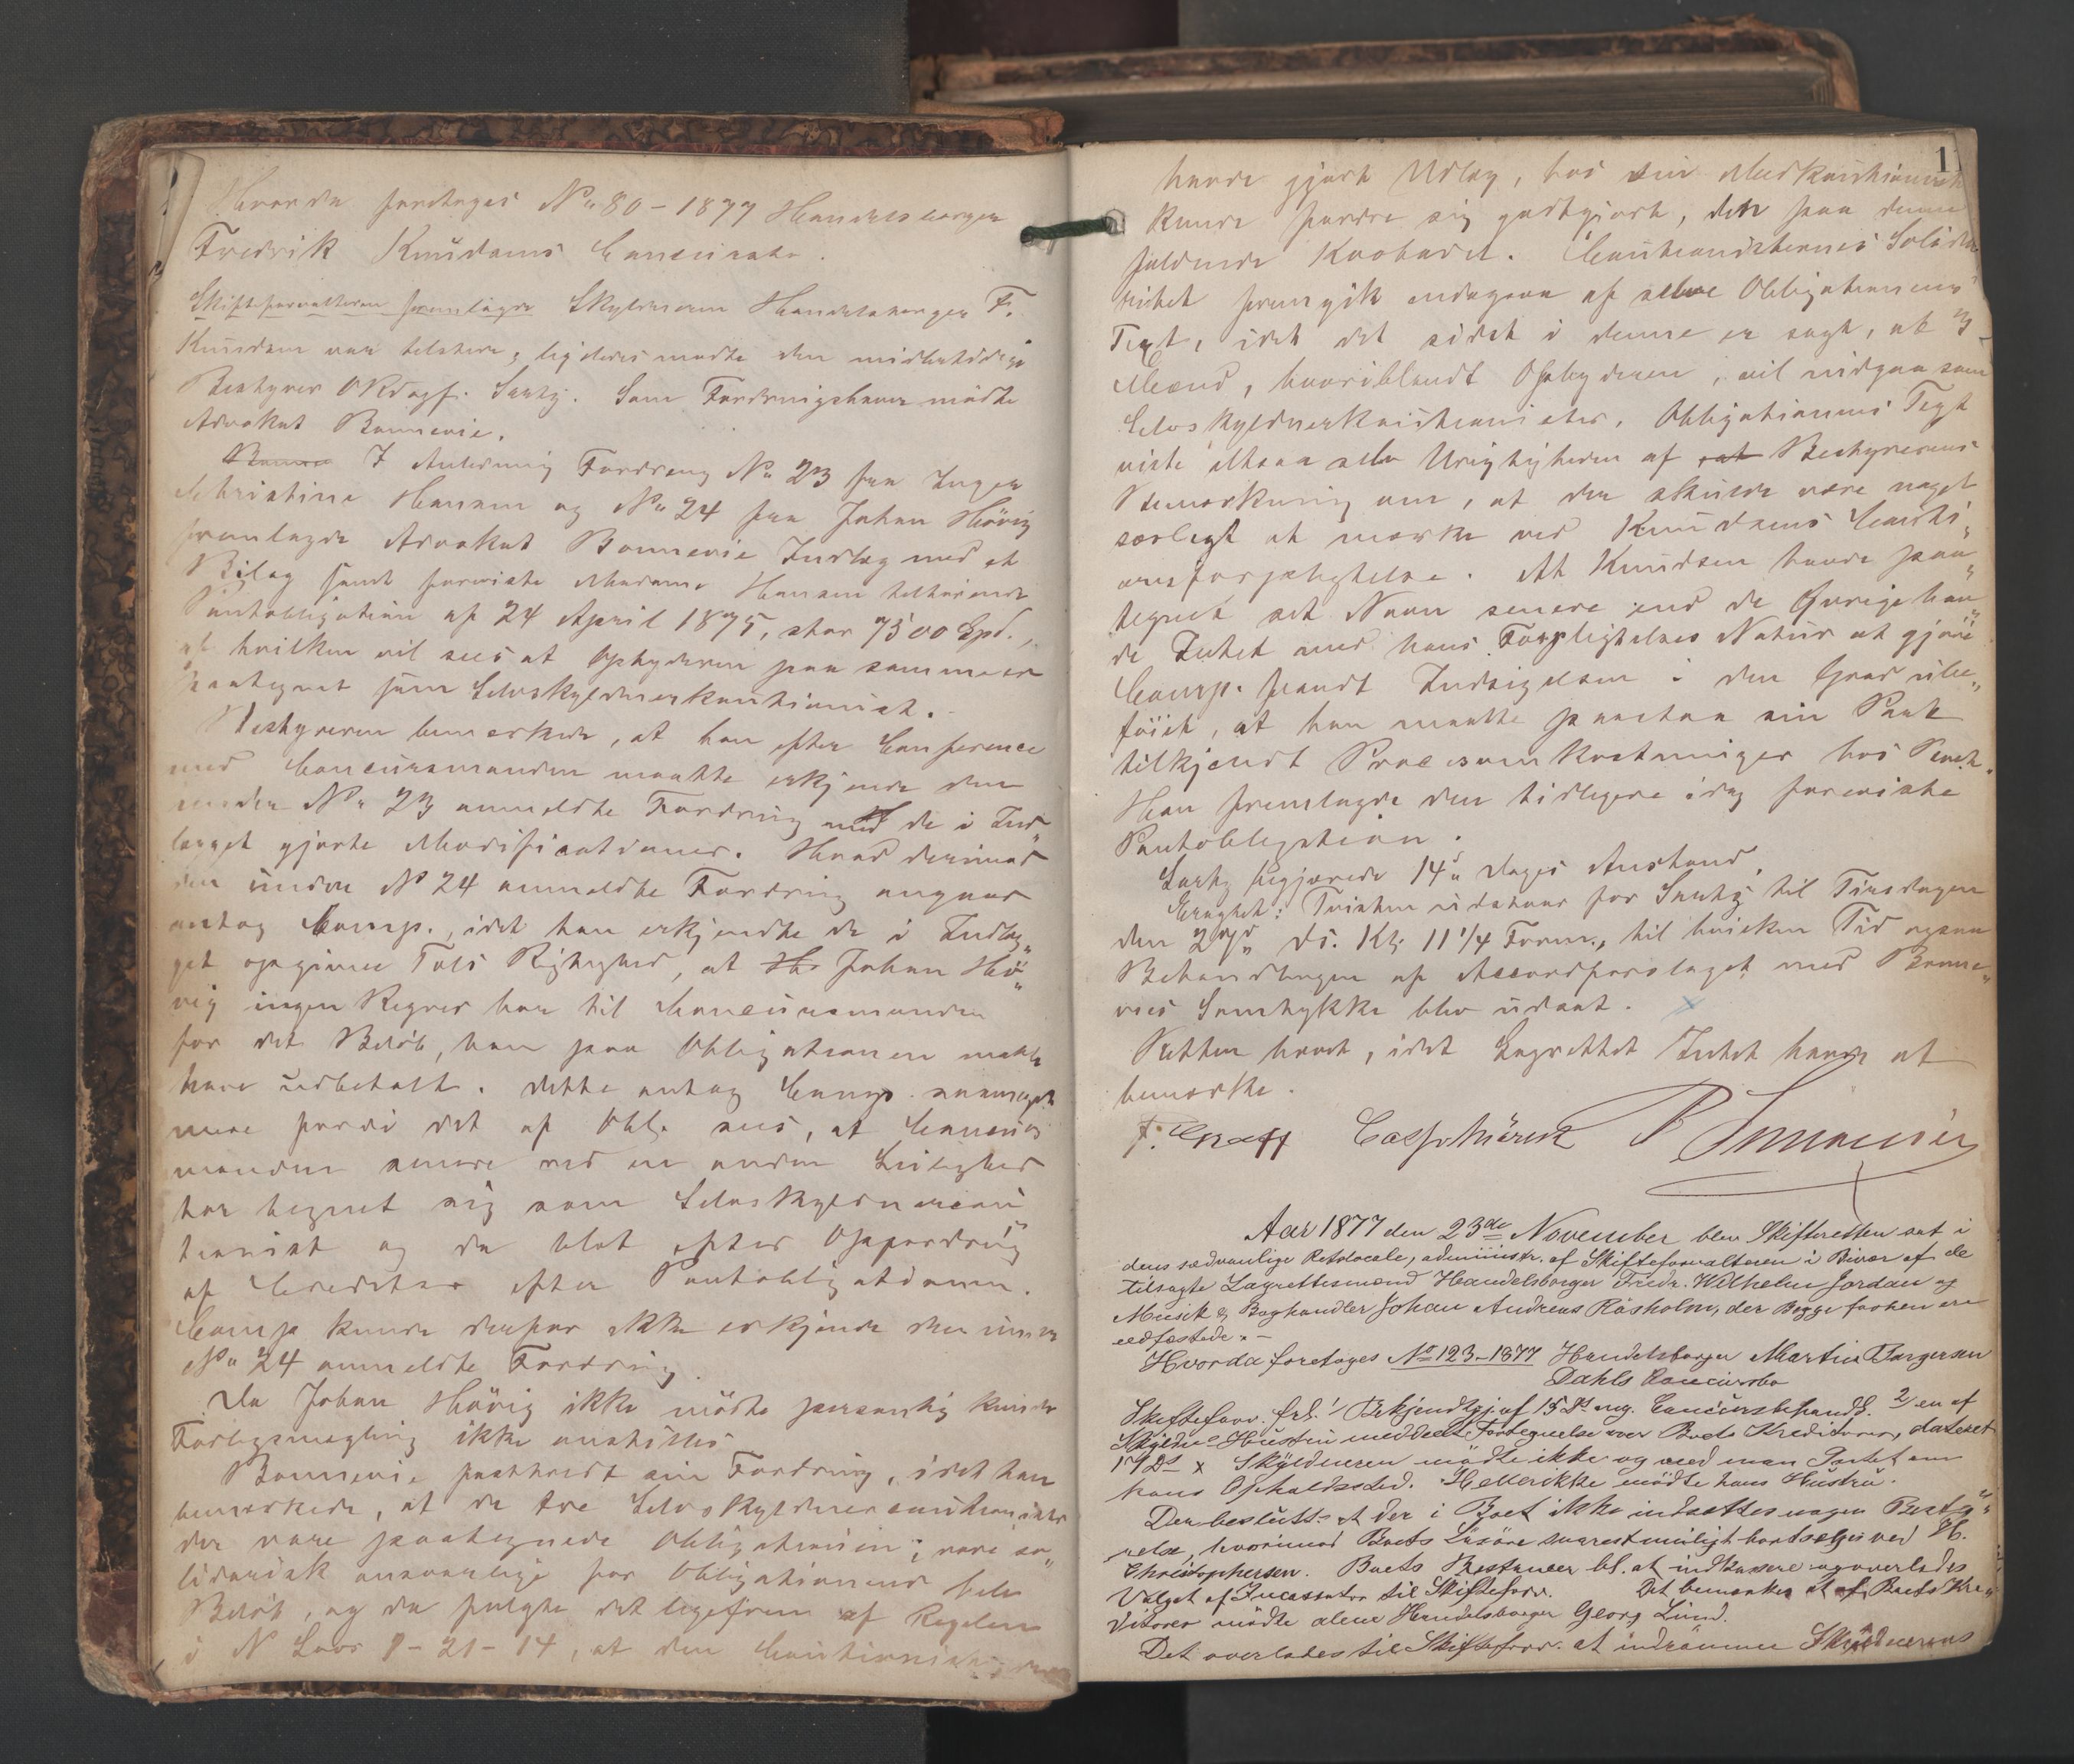 Hvorda foretoges No 80 - 1877 Handelsborger
Fredrik Knudsens Concursbo.
Skifteforvalteren fremlagde Skyldneren Handelsborger F.
Knudsen var tilstede, ligeledes mødte den midlertidige
Bestyrer ORsagf. Sartz. Som Fordringshaver mødte
Advokat Bonnevie.
Bonne I Anledning Fordring No 23 fra Inger
Christine Hansen og No 24 fra Johan Hövig
fremlagde Advokat Bonnevie Indlæg med et
Bilag samt foreviste Madame Hansen tilhørende
Pantobligation af 24 April 1875, stor 7500 Spd.,
af hvilken vil sees at Opbyderen paa samme er
paategnet som Selvskyldnerkautionist.
Bestyreren bemærkede, at han efter Conference
med Concursmanden maatte erkjende den
under No 23 anmeldte Fordring med de i Ind„
lægget gjorte Modificationer. Hvad derimod
den under No 24 anmeldte Fordring angaar
antog Comp., idet han erkjendte de i Indlæg„
get opgivne Tals Rigtighed, at H Johan Hö„
vig ingen Regres har til Concursmanden
for det Beløb, han paa Obligationen maatte
have udbetalt. Dette antog Comp. saameget
mere fordi det af Obl. sees, at Concurs
manden senere ved en anden Leilighed
har tegnet sig som Selvskyldnercau„
tionist og da blot efter Opfordring
af Creditor efter Pantobligationen.
Comp kunde derfor ikke erkjende den under
No 24 anmeldte Fordring.
Da Johan Hövig ikke mødte personlig kunde
Forligsmægling ikke anstilles
Bonnevie fastholdt sin Fordring, idet han
bemærkede, at de tre Selvskyldnercautionister
der vare paategnede Obligationen, vare so„
lidarisk ansvarlige for Obligationens hele
Beløb, og da fulgte det ligefrem af Regelen
i N Lovs 1-21-14, at den Cautionist, der
1
havde gjort Udlæg, hos sin Medkautionist
kunde fordre sig godtgjort, det paa denne
faldende Kvotadel. Cautionisternes Solida
ritet fremgik endogsaa af selve Obligationens
Text, idet det sidst i denne er sagt, at 3
Mænd, hvoriblandt Opbyderen, vil indgaa som
Selvskyldnerkautionister. Obligationens Text
viste altsaa selv Urigtigheden af at Bestyrerens
Bemærkning om, at der skulde være noget
særligt at mærke ved Knudsens Cauti„
onsforpligtelse. At Knudsen havde paa„
tegnet sit Navn senere end de Øvrige hav„
de Intet med hans Forpligtelses Natur at gjøre
Comp. fandt Indsigelsen i den Grad ube„
føiet, at han maatte paastaa sin Part
tilkjendt Procesomkostninger hos Boet.
Han fremlagde den tidligere idag foreviste
Pantobligation.
Sartz begjærede 14 Dages Anstand.
Eragtet: Tvisten udstaar for Sartz til Tirsdagen
den 27de ds. Kl. 11 1/4 Form., til hvilken Tid ogsaa
Behandlingen af Accordforslaget med Bonne„
vies Samtykke blev udsat.
Retten hævet, idet Lagrettet Intet havde at
bemærke.
Aar 1877 den 23de November blev Skifteretten sat i
dens sædvanlige Retslocale, administr. af Skifteforvalteren i Bivær af de
tilsagte Lagrettesmænd Handelsborger Fredr. Wilhelm Jordan og
Musik & Boghandler Johan Andreas Räsholm, der Begge forhen ere
edfæstede.-
Hvorda foretoges No 123-1877 Handelsborger Martin Torgersen
Dahls Concursbo
Skifteforv. frl. 1/ Bekjendtgj. af 15 Ds ang. Concursbehandl. 2/ en af
Skyldn. Hustru meddelt Fortegnelse over Boets Kreditorer, dateret
17 Ds x Skyldneren mødte ikke og ved man Intet om
hans Opholdssted. Hellerikke mødte hans Hustru.
Der beslutt. at der i Boet ikke indsættes nogen Besty„
relse, hvorimod Boets Løsøre snarest muligt bortsælges ved H.
Christophersen. Boets Restancer bl. at indkassere og overlades
Valget af Incassator til Skifteforv. Det bemærkes at af Boets Kre„
ditorer mødte alene Handelsborger Georg Lund.
Det overlades til Skifteforv. at indrømme Skyldnerens